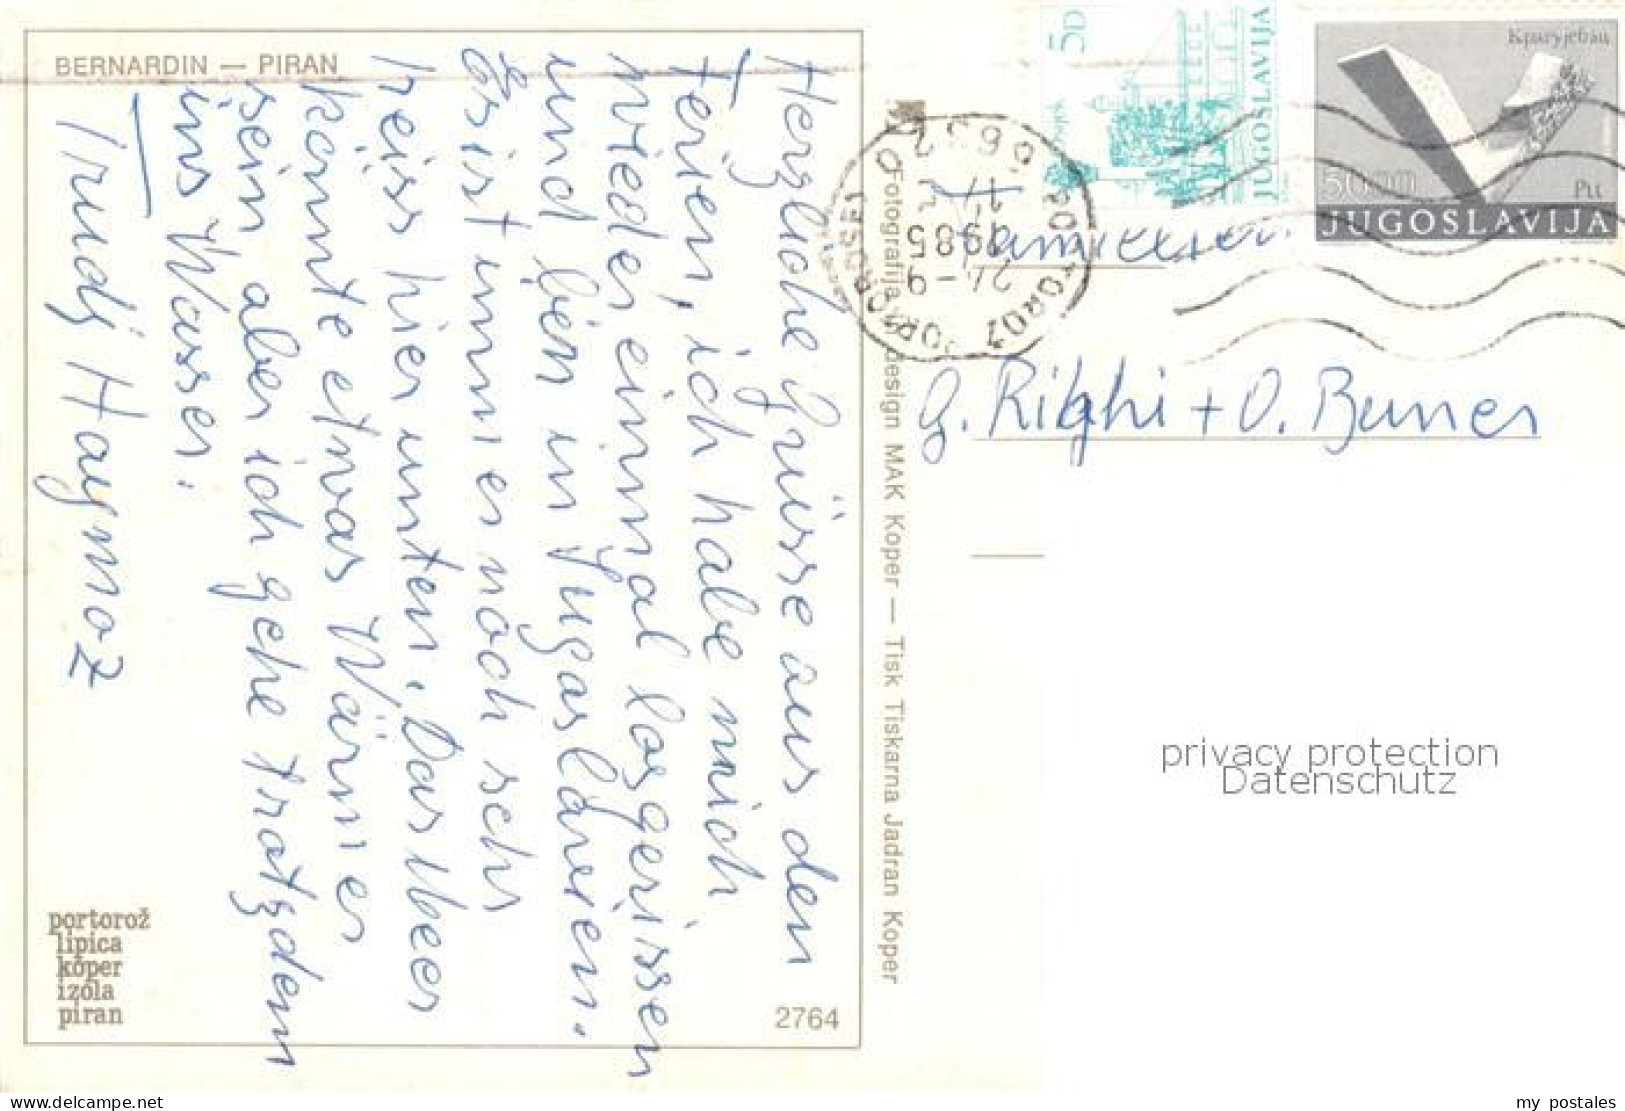 BERNARDIN — PIRAN
Herzliche Grüsse aus den
Ferien, ich habe mich
wieder einmal losgerissen
und bin in Yugoslavien.
Es ist immer noch sehr
heiss hier unten. Das Meer
könnte etwas Wärmer
sein, aber ich gehe trotzdem
ins Wasser.
Trudj Haymoz
portorož
lipica
koper
izola
piran
2764
Fotografija design MAK Koper — Tisk Tiskarna Jadran Koper
5D
JUGOSLAVIJA
Крагујевац
50.00
Ptt
JUGOSLAVIJA
PORTOROŽ PORTOROSE
24-9
1985
G. Righi + O. Buner
privacy protection
Datenschutz
my postales
www.delcampe.net